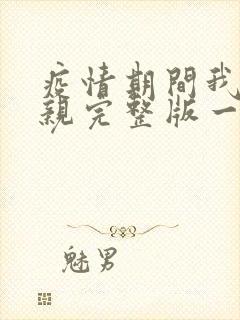 疫情期間我
親完整版一
魅男